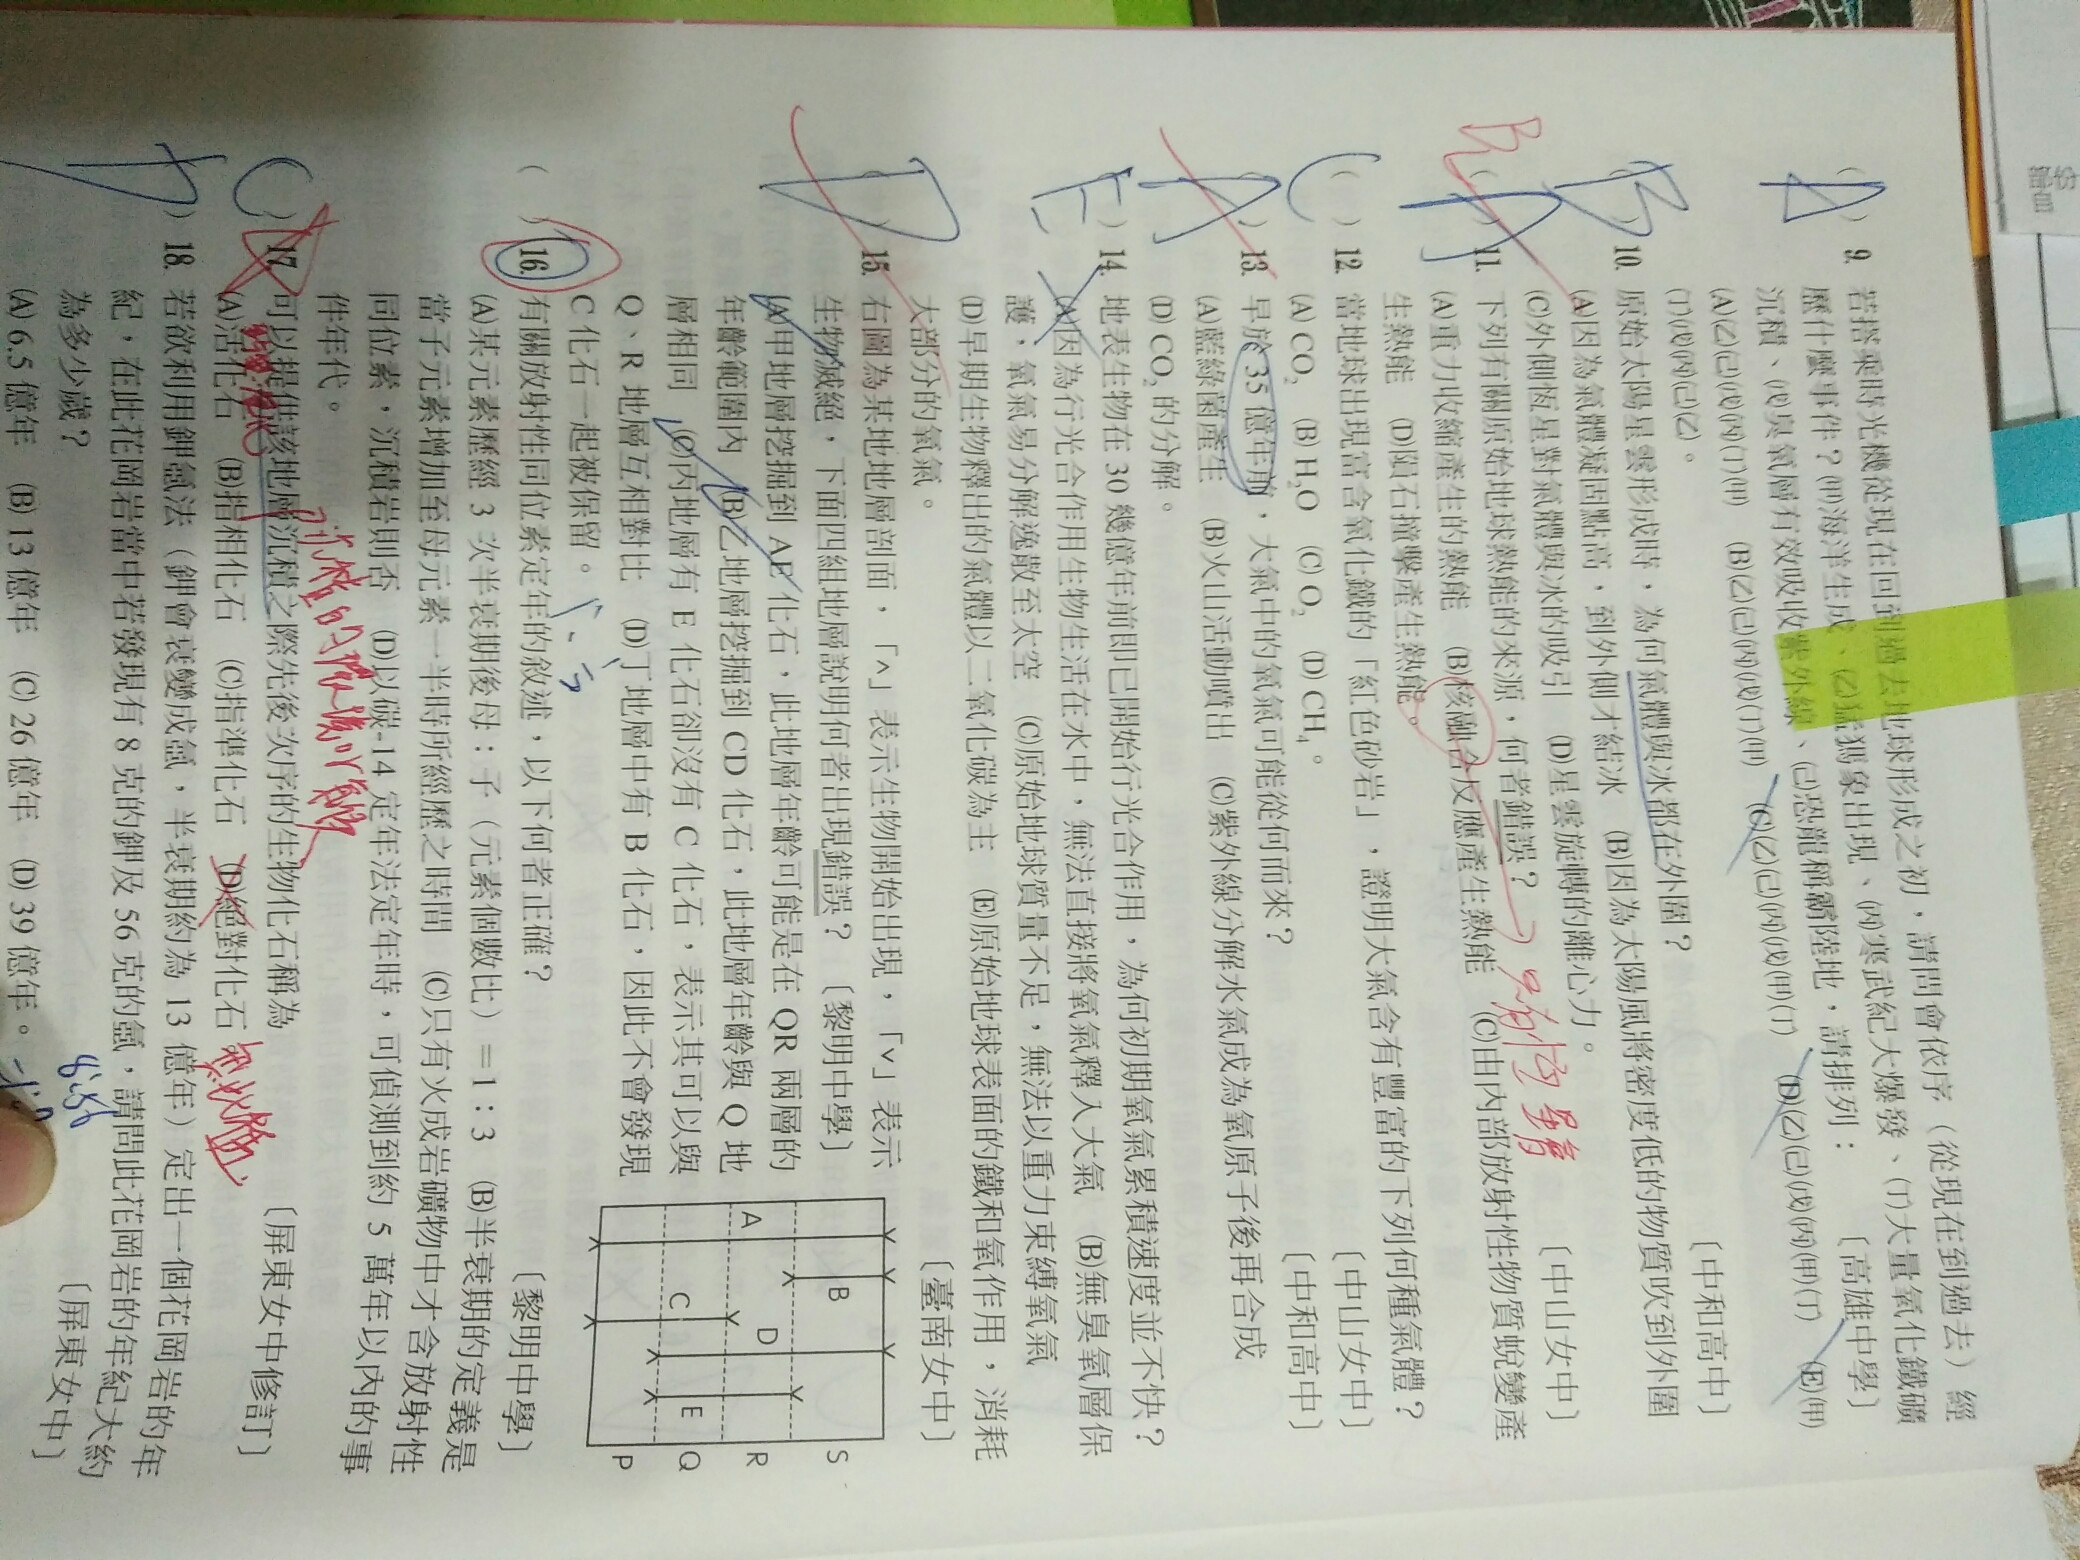 9. 若搭乘時光機從現在回到過去地球形成之初，請問會依序（從現在到過去）經
歷什麼事件？(甲)海洋生成、(乙)猛獁象出現、(丙)寒武紀大爆發、(丁)大量氧化鐵礦
沉積、(戊)臭氧層有效吸收紫外線、(己)恐龍稱霸陸地，請排列： 〔高雄中學〕
(A)(乙)(己)(戊)(丙)(丁)(甲) (B)(乙)(己)(丙)(戊)(丁)(甲) (C)(乙)(己)(丙)(戊)(甲)(丁) (D)(乙)(己)(戊)(丙)(甲)(丁) (E)(甲)
(丁)(戊)(丙)(己)(乙)。
B
10. 原始太陽星雲形成時，為何氣體與冰都在外圍？ 〔中和高中〕
(A)因為氣體凝固點高，到外側才結冰 (B)因為太陽風將密度低的物質吹到外圍
(C)外側恆星對氣體與冰的吸引 (D)星雲旋轉的離心力。
B A
11. 下列有關原始地球熱能的來源，何者錯誤？ 〔中山女中〕
(A)重力收縮產生的熱能 (B)核融合反應產生熱能 (C)由內部放射性物質蛻變產
生熱能 (D)隕石撞擊產生熱能。
C
12. 當地球出現富含氧化鐵的「紅色砂岩」，證明大氣含有豐富的下列何種氣體？
(A) CO₂ (B) H₂O (C) O₂ (D) CH₄。 〔中山女中〕
A
13. 早於 35 億年前，大氣中的氧氣可能從何而來？ 〔中和高中〕
(A)藍綠菌產生 (B)火山活動噴出 (C)紫外線分解水氣成為氧原子後再合成
(D) CO₂ 的分解。
E
14. 地表生物在 30 幾億年前即已開始行光合作用，為何初期氧氣累積速度並不快？
(A)因為行光合作用生物生活在水中，無法直接將氧氣釋入大氣 (B)無臭氧層保
護，氧氣易分解逸散至太空 (C)原始地球質量不足，無法以重力束縛氧氣
(D)早期生物釋出的氣體以二氧化碳為主 (E)原始地球表面的鐵和氧作用，消耗
大部分的氧氣。 〔臺南女中〕
D
15. 右圖為某地地層剖面，「∧」表示生物開始出現，「∨」表示
生物滅絕，下面四組地層說明何者出現錯誤？ 〔黎明中學〕
(A)甲地層挖掘到 AE 化石，此地層年齡可能是在 QR 兩層的
年齡範圍內 (B)乙地層挖掘到 CD 化石，此地層年齡與 Q 地
層相同 (C)丙地層有 E 化石卻沒有 C 化石，表示其可以與
Q、R 地層互相對比 (D)丁地層中有 B 化石，因此不會發現
C 化石一起被保留。
A B C D E
S R Q P
( ) 16. 有關放射性同位素定年的敘述，以下何者正確？ 〔黎明中學〕
(A)某元素歷經 3 次半衰期後母：子（元素個數比）＝1：3 (B)半衰期的定義是
當子元素增加至母元素一半時所經歷之時間 (C)只有火成岩礦物中才含放射性
同位素，沉積岩則否 (D)以碳-14 定年法定年時，可偵測到約 5 萬年以內的事
件年代。
C
17. 可以提供該地層沉積之際先後次序的生物化石稱為 〔屏東女中修訂〕
(A)活化石 (B)指相化石 (C)指準化石 (D)絕對化石
18. 若欲利用鉀氬法（鉀會衰變成氬，半衰期約為 13 億年）定出一個花岡岩的年
紀，在此花岡岩當中若發現有 8 克的鉀及 56 克的氬，請問此花岡岩的年紀大約
為多少歲？ 〔屏東女中〕
8:56
(A) 6.5 億年 (B) 13 億年 (C) 26 億年 (D) 39 億年。